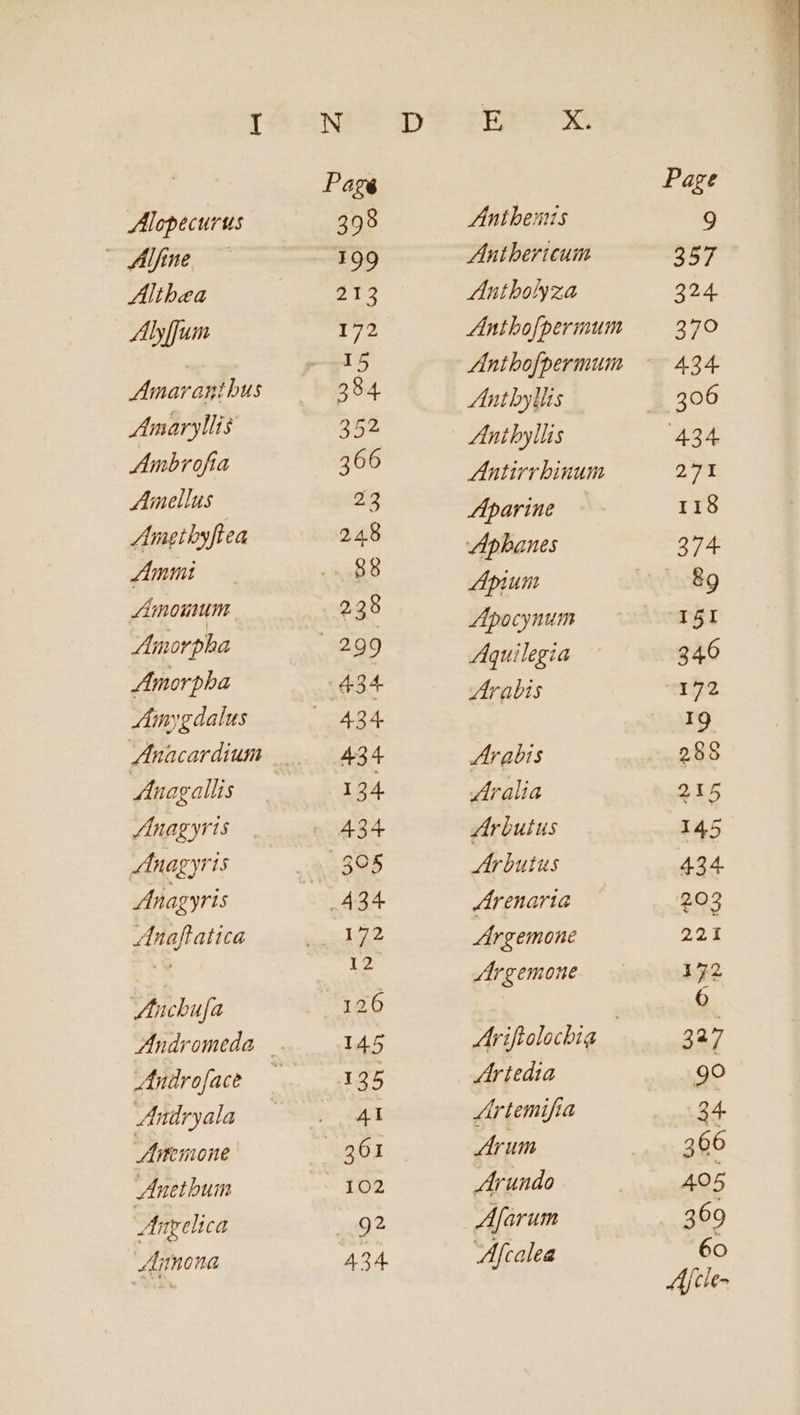 I N D E X.
Page
Alopecurus 398
Alſine 199
Althæa 213
Alyſſum 172
15
Amaranthus 384
Amaryllis 352
Ambroſia 366
Amellus 23
Amethyſtea 248
Ammi 88
Amomum 238
Amorpha 299
Amorpha 434
Amygdalus 434
Anacardium 434
Anagallis 134
Anagyris 434
Anagyris 305
Anagyris 434
Anaſtatica 172
12
Anchuſa 126
Andromeda 145
Androſace 135
Andryala 41
Anemone 361
Anethum 102
Angelica 92
Annona 434
Page
Anthemis 9
Anthericum 357
Antholyza 324
Anthoſpermum 370
Anthoſpermum 434
Anthyllis 306
Anthyllis 434
Antirrhinum 271
Aparine 118
Aphanes 374
Apium 89
Apocynum 151
Aquilegia 346
Arabis 172
19
Arabis 288
Aralia 215
Arbutus 145
Arbutus 434
Arenaria 203
Argemone 221
Argemone 172
6
Ariſtolochia 327
Artedia 90
Artemiſia 34
Arum 366
Arundo 405
Aſarum 369
Aſcalea 60
Aſcle-